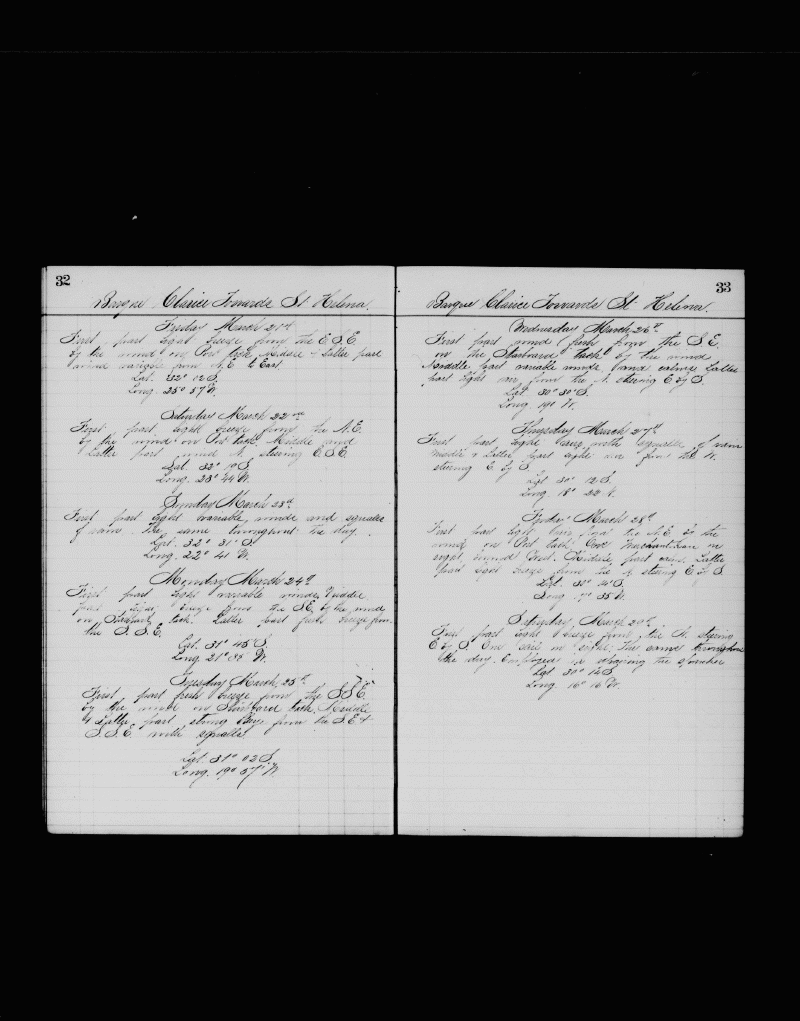 32
Barque Clarice Towards St Helena.
Friday March 21st
First part light breeze from the E.S.E.
by the wind on Port tack, Middle & Latter part
wind varying from N.E. to East
Lat. 32° 12 S.
Long. 25° 57 W.
Saturday March 22nd
First part light breeze from the N.E.
by the wind on Port tack. Middle and
Latter part wind N. steering E.S.E.
Lat. 32° 19 S.
Long. 23° 44 W.
Sunday March 23d
First part light variable winds and squalls
of rain. The same throughout the day.
Lat. 32° 31 S.
Long. 22° 41 W.
Monday March 24th
First part light variable winds, Middle
part light breeze from the S.E. by the wind
on Starboard tack. Latter part fresh breeze from
the S.S.E.
Lat. 31° 45 S.
Long 21° 35 W.
Tuesday March 25th
First part fresh breeze from the S.S.E.
by the wind on Starboard tack. Middle
& Latter part strong breeze from the S.E. &
S.S.E. with squalls
Lat. 31° 02 S.
Long. 19° 57 W.
33
Barque Clarice Towards St. Helena.
Wednesday March 26th
First part wind fresh from the S.E.
on the Starboard tack by the wind
Middle part variable winds and calms Latter
part light air from the N. steering E by S.
Lat 30° 30 S.
Long. 19° W.
Thursday March 27th
First part light airs with squalls of rain
Middle & Latter part light air from the N.
steering E. by S.
Lat 30° 12 S.
Long. 18° 22 W.
Friday March 28th
First part light airs from the N.E. by the
wind on Port tack. One Merchantman in
sight bound West. Middle part calm. Latter
part light breeze from the N steering E by S
Lat. 30° S.
Long. 17° 35 W.
Saturday, March 29th
First part light breeze from the N. steering
E by S. One sail in sight. The same throughout
the day. Employed in the
Lat 30° 12 S.
Long. 16° 16 W.